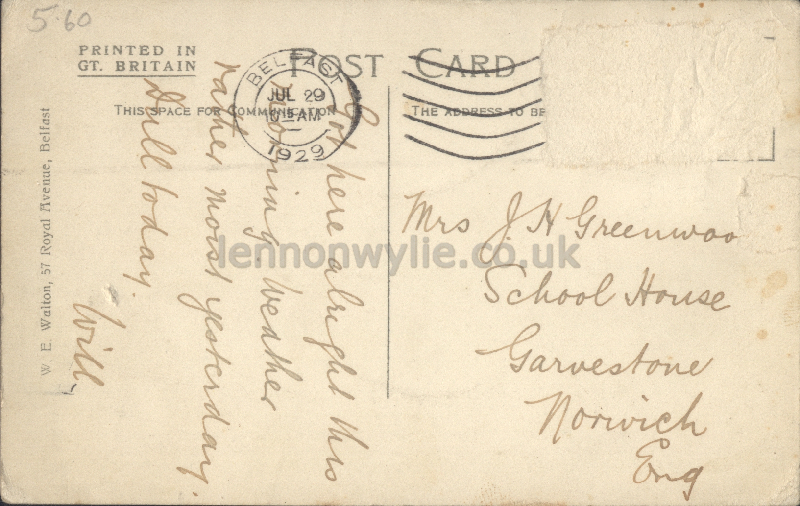 5.60
PRINTED IN
GT. BRITAIN
POST CARD
BELFAST
JUL 29
1929
THIS SPACE FOR COMMUNICATION
THE ADDRESS TO BE
W. E. Walton, 57 Royal Avenue, Belfast
Got here alright this
morning. Weather
rather moist yesterday.
Dull today.
Will.
Mrs J H Greenwoo
School House
Garvestone
Norwich
Eng
lennonwylie.co.uk